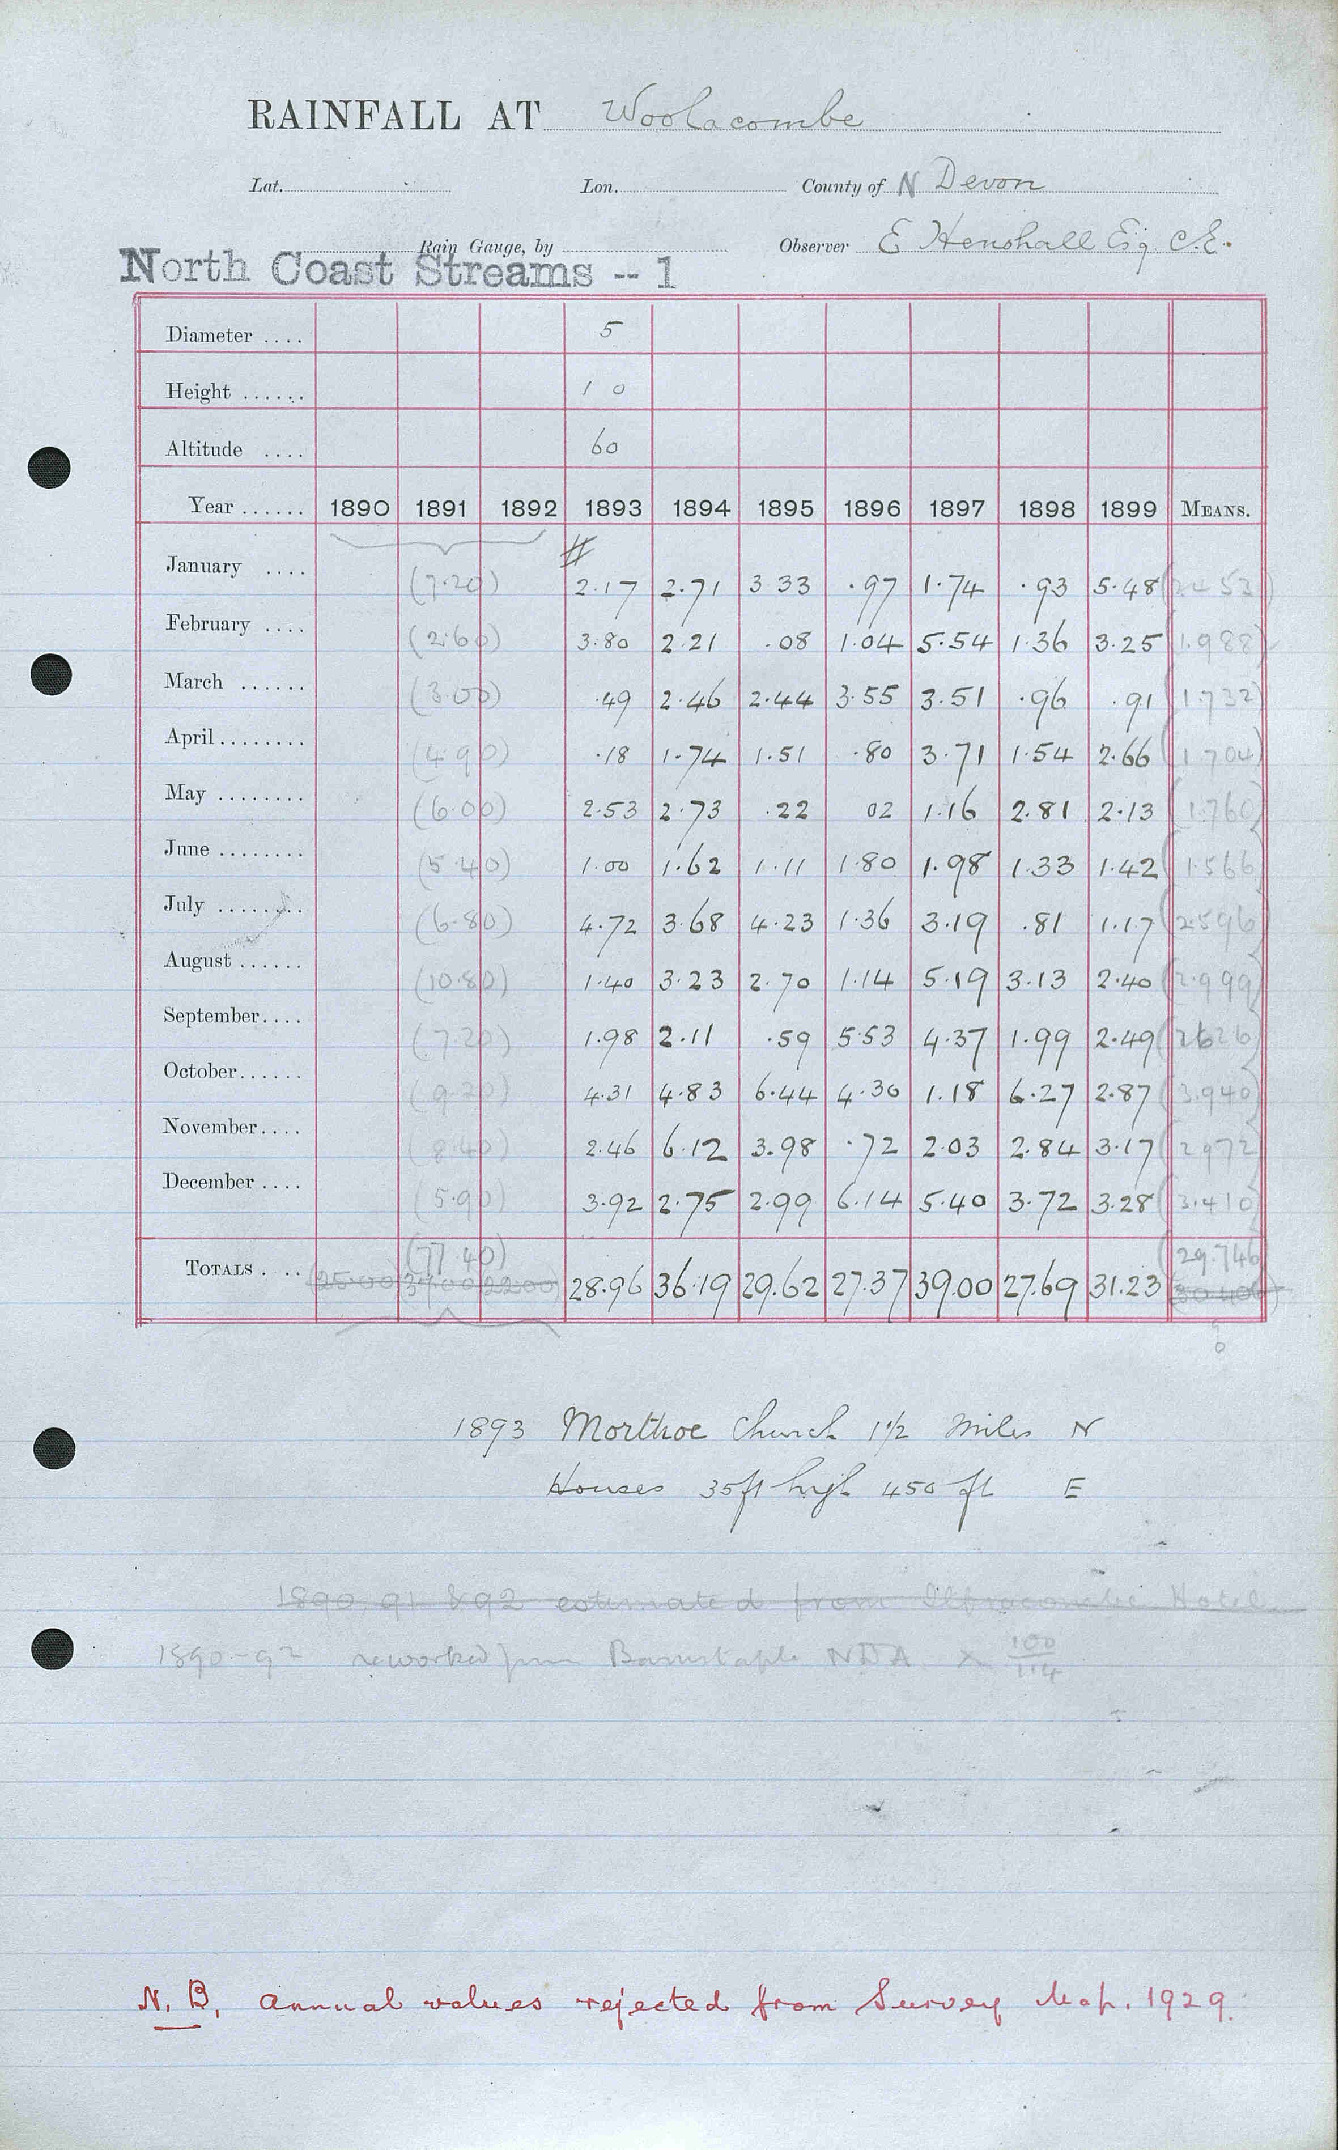 RAINFALL AT Woolacombe
Lat. Lon. County of N Devon
Rain Gauge, by Observer E Henshall Esq C.E.
North Coast Streams -- 1
Diameter .... 5
Height ...... 1 0
Altitude .... 60
Year ...... 1890 1891 1892 1893 1894 1895 1896 1897 1898 1899 MEANS.
#
January .... (7.20) 2.17 2.71 3.33 .97 1.74 .93 5.48 (2.453)
February .... (2.60) 3.80 2.21 .08 1.04 5.54 1.36 3.25 (1.988)
March ...... (3.00) .49 2.46 2.44 3.55 3.51 .96 .91 (1.732)
April ........ (4.90) .18 1.74 1.51 .80 3.71 1.54 2.66 (1.704)
May ........ (6.00) 2.53 2.73 .22 02 1.16 2.81 2.13 (1.760)
June ........ (5.40) 1.00 1.62 1.11 1.80 1.98 1.33 1.42 (1.566)
July ........ (6.80) 4.72 3.68 4.23 1.36 3.19 .81 1.17 (2.596)
August ...... (10.80) 1.40 3.23 2.70 1.14 5.19 3.13 2.40 (2.999)
September .... (7.20) 1.98 2.11 .59 5.53 4.37 1.99 2.49 (2.626)
October ...... (9.20) 4.31 4.83 6.44 4.30 1.18 6.27 2.87 (3.940)
November .... (8.40) 2.46 6.12 3.98 .72 2.03 2.84 3.17 (2.972)
December .... (5.90) 3.92 2.75 2.99 6.14 5.40 3.72 3.28 (3.410)
(77.40) (29.746)
TOTALS .... 28.96 36.19 29.62 27.37 39.00 27.69 31.23
1893 Morthoe Church 1½ miles N
Houses 35ft high 450 ft E
1890, 91 & 92 estimated from Ilfracombe Hotel
1890-92 reworked from Barnstaple NDA × 100/114
N.B. Annual values rejected from Survey Map. 1929.